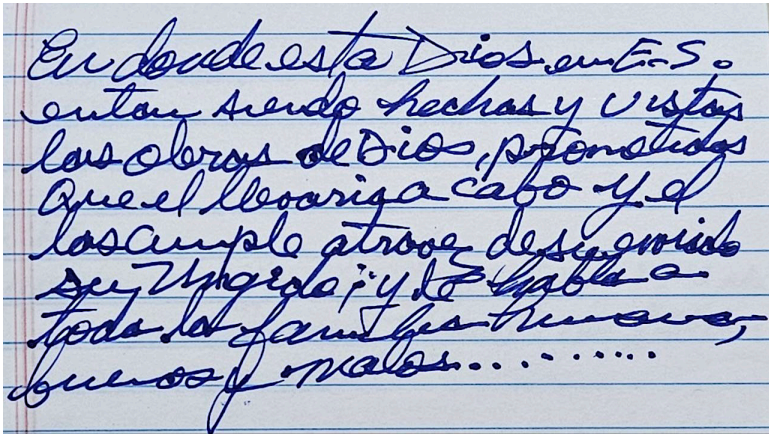 En donde esta Dios en E.S.
entan siendo hechas y vistas
las obras de Dios, prometidas
Que el llevariga cabo y el
los cumple atravez de su enviado
su Ungido; y le habla a
toda la familia humana,
buenos y malos.........